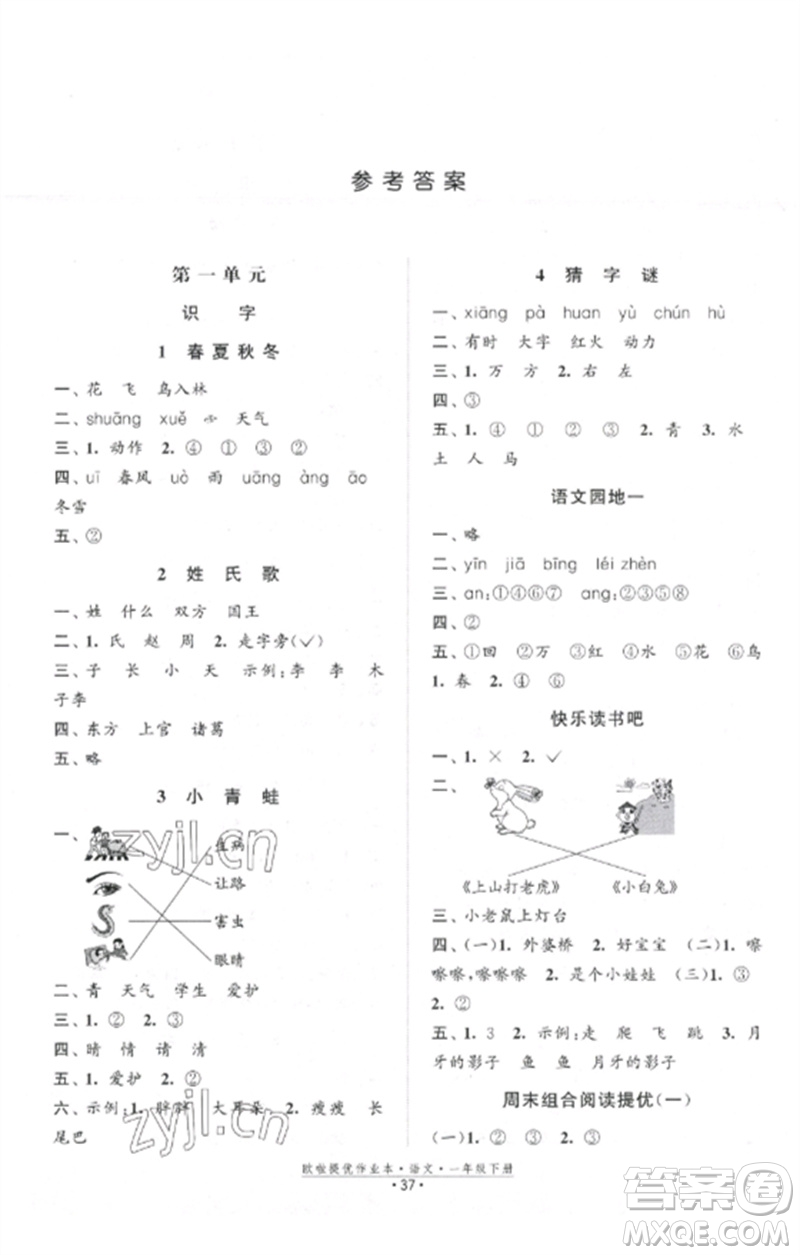 参考答案
第一单元
识 字
1 春夏秋冬
一、花 飞 鸟入林
二、shuāng xuě 心 天气
三、1. 动作 2. ④ ① ③ ②
四、uī 春风 uò 雨 uāng àng ǎo
冬雪
五、②
2 姓 氏 歌
一、姓 什么 双方 国王
二、1. 氏 赵 周 2. 走字旁(✓)
三、子 长 小 天 示例:李 李 木
子李
四、东方 上官 诸葛
五、略
3 小 青 蛙
一、
让路
害虫
眼睛
二、青 天气 学生 爱护
三、1. ② 2. ③
四、晴 情 请 清
五、1. 爱护 2. ②
六、示例:1. 胖胖 大耳朵 2. 瘦瘦 长
尾巴
4 猜 字 谜
一、xiāng pà huan yù chún hù
二、有时 大字 红火 动力
三、1. 万 方 2. 右 左
四、③
五、1. ④ ① ② ③ 2. 青 3. 水
土 人 马
语文园地一
一、略
二、yīn jiā bīng léi zhèn
三、an:①④⑥⑦ ang:②③⑤⑧
四、②
五、①回 ②万 ③红 ④水 ⑤花 ⑥鸟
1. 春 2. ④ ⑥
快乐读书吧
一、1. × 2. ✓
二、
《上山打老虎》 《小白兔》
三、小老鼠上灯台
四、(一)1. 外婆桥 2. 好宝宝 (二)1. 嚓
嚓嚓,嚓嚓嚓 2. 是个小娃娃 (三)1. ③
2. ②
五、1. 3 2. 示例:走 爬 飞 跳 3. 月
牙的影子 鱼 鱼 月牙的影子
周末组合阅读提优(一)
(一)1. ② ③ ① 2. ③
欧啦提优作业本·语文·一年级下册
·37·
zyjl.cn
zyjl.cn
答案圈
MXQE.COM